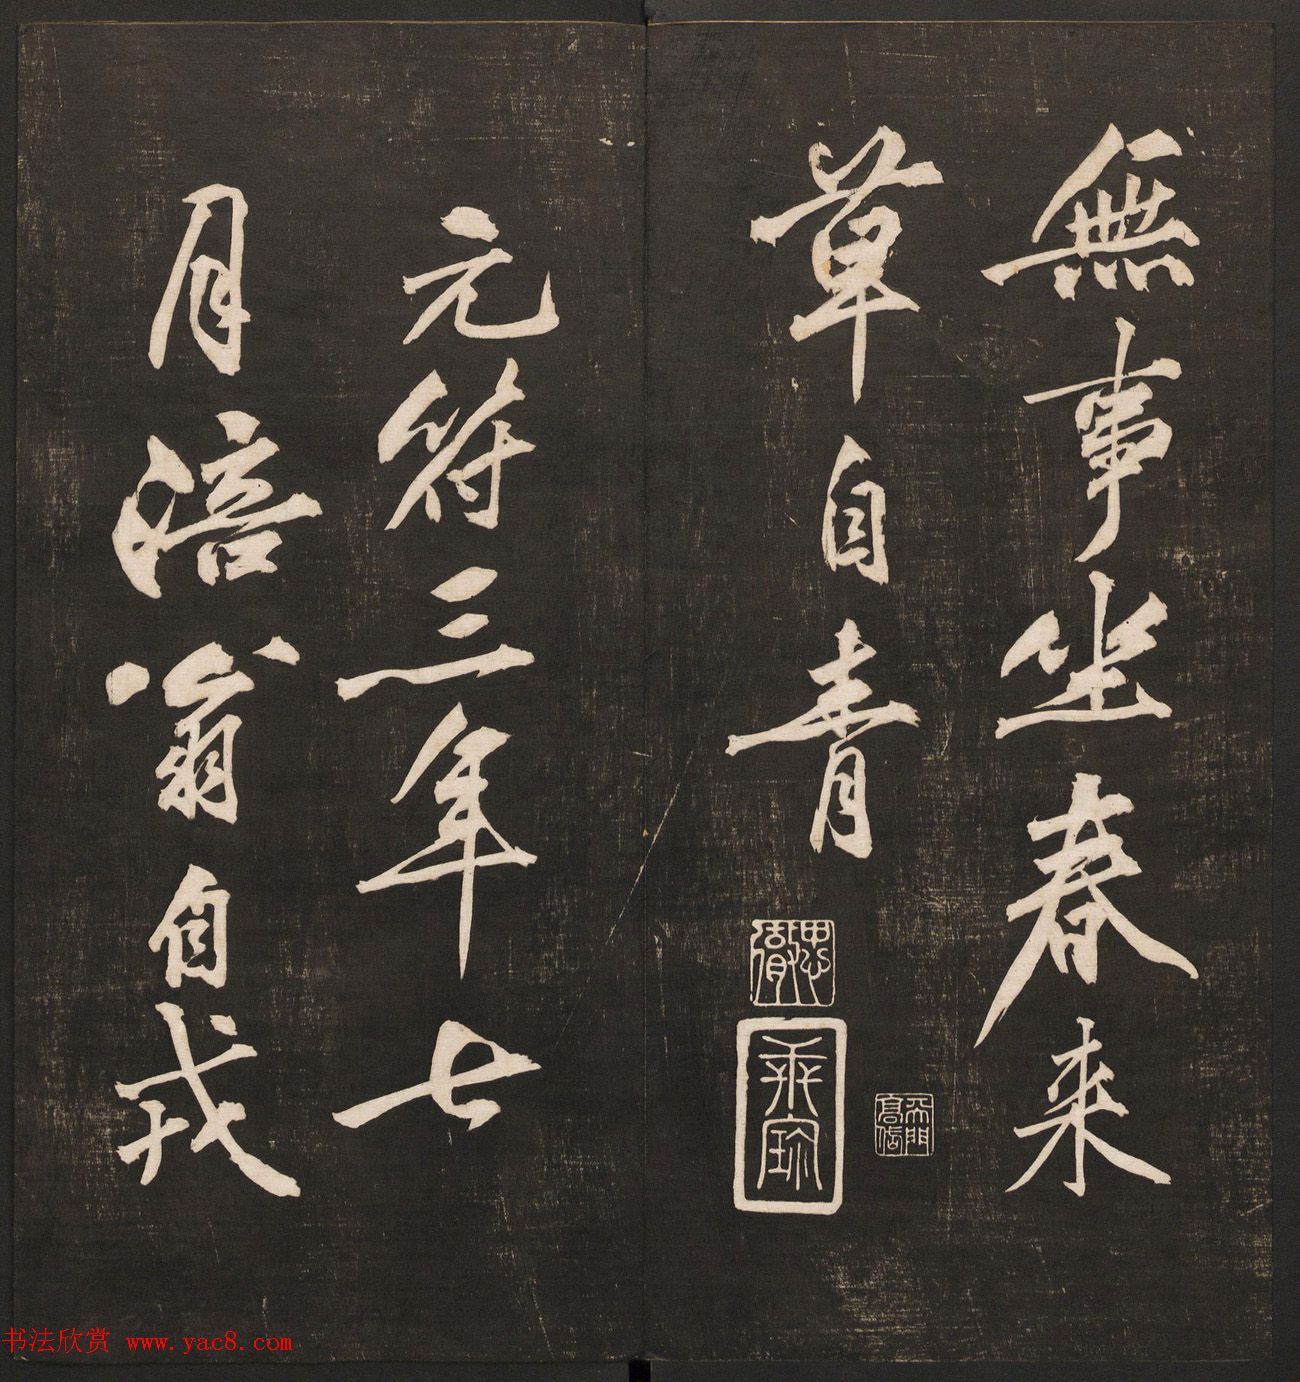 無事坐春来
草自青
元符三年七
月涪翁自戎
书法欣赏 www.yac8.com